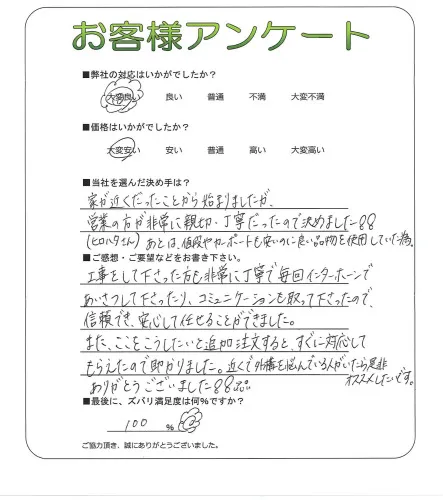 お客様アンケート
■弊社の対応はいかがでしたか?
大変良い 良い 普通 不満 大変不満
■価格はいかがでしたか?
大変安い 安い 普通 高い 大変高い
■当社を選んだ決め手は?
家が近くだったことから始まりましたが、
営業の方が非常に親切・丁寧だったので決めました!!
(ヒロハタさん) あとは、値段やカーポートも安いのに良い品物を使用していた為。
■ご感想・ご要望などをお書き下さい。
工事をして下さった方も非常に丁寧で毎回インターホーンで
あいさつして下さったり、コミュニケーションも取って下さったので、
信頼でき、安心して任せることができました。
また、ここをこうしたいと追加注文すると、すぐに対応して
もらえたので助かりました。近くで外構を悩んでいる人がいたら是非
ありがとうございました!! オススメしたいです。
■最後に、ズバリ満足度は何%ですか?
100 %
ご協力頂き、誠にありがとうございました。